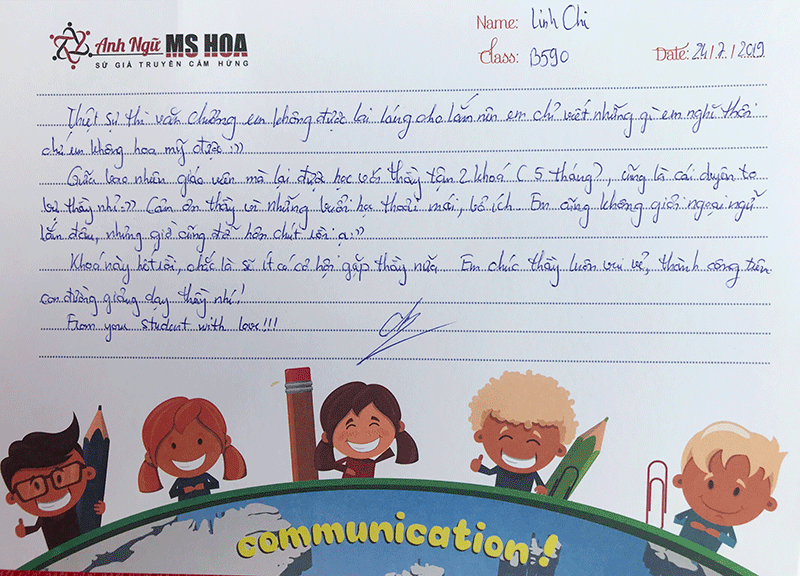 Anh Ngữ MS HOA
SỨ GIẢ TRUYỀN CẢM HỨNG
Name: Linh Chi
Class: B590
Date: 24/7/2019
Thiệt sự thì văn chương em không được lai láng cho lắm nên em chỉ viết những gì em nghĩ thôi
chứ em không hoa mỹ được :))
Giữa bao nhiên giáo viên mà lại được học với thầy tận 2 khoá (5 tháng), cũng là cái duyên to
bự thầy nhỉ :)) Cảm ơn thầy vì những buổi học thoải mái, bổ ích. Em cũng không giỏi ngoại ngữ
lắm đâu, nhưng giờ cũng đỡ hơn chút rồi ạ :))
Khoá này hết rồi, chắc là sẽ ít có cơ hội gặp thầy nữa. Em chúc thầy luôn vui vẻ, thành công trên
con đường giảng dạy thầy nhé!
From your student with love!!!
communication!